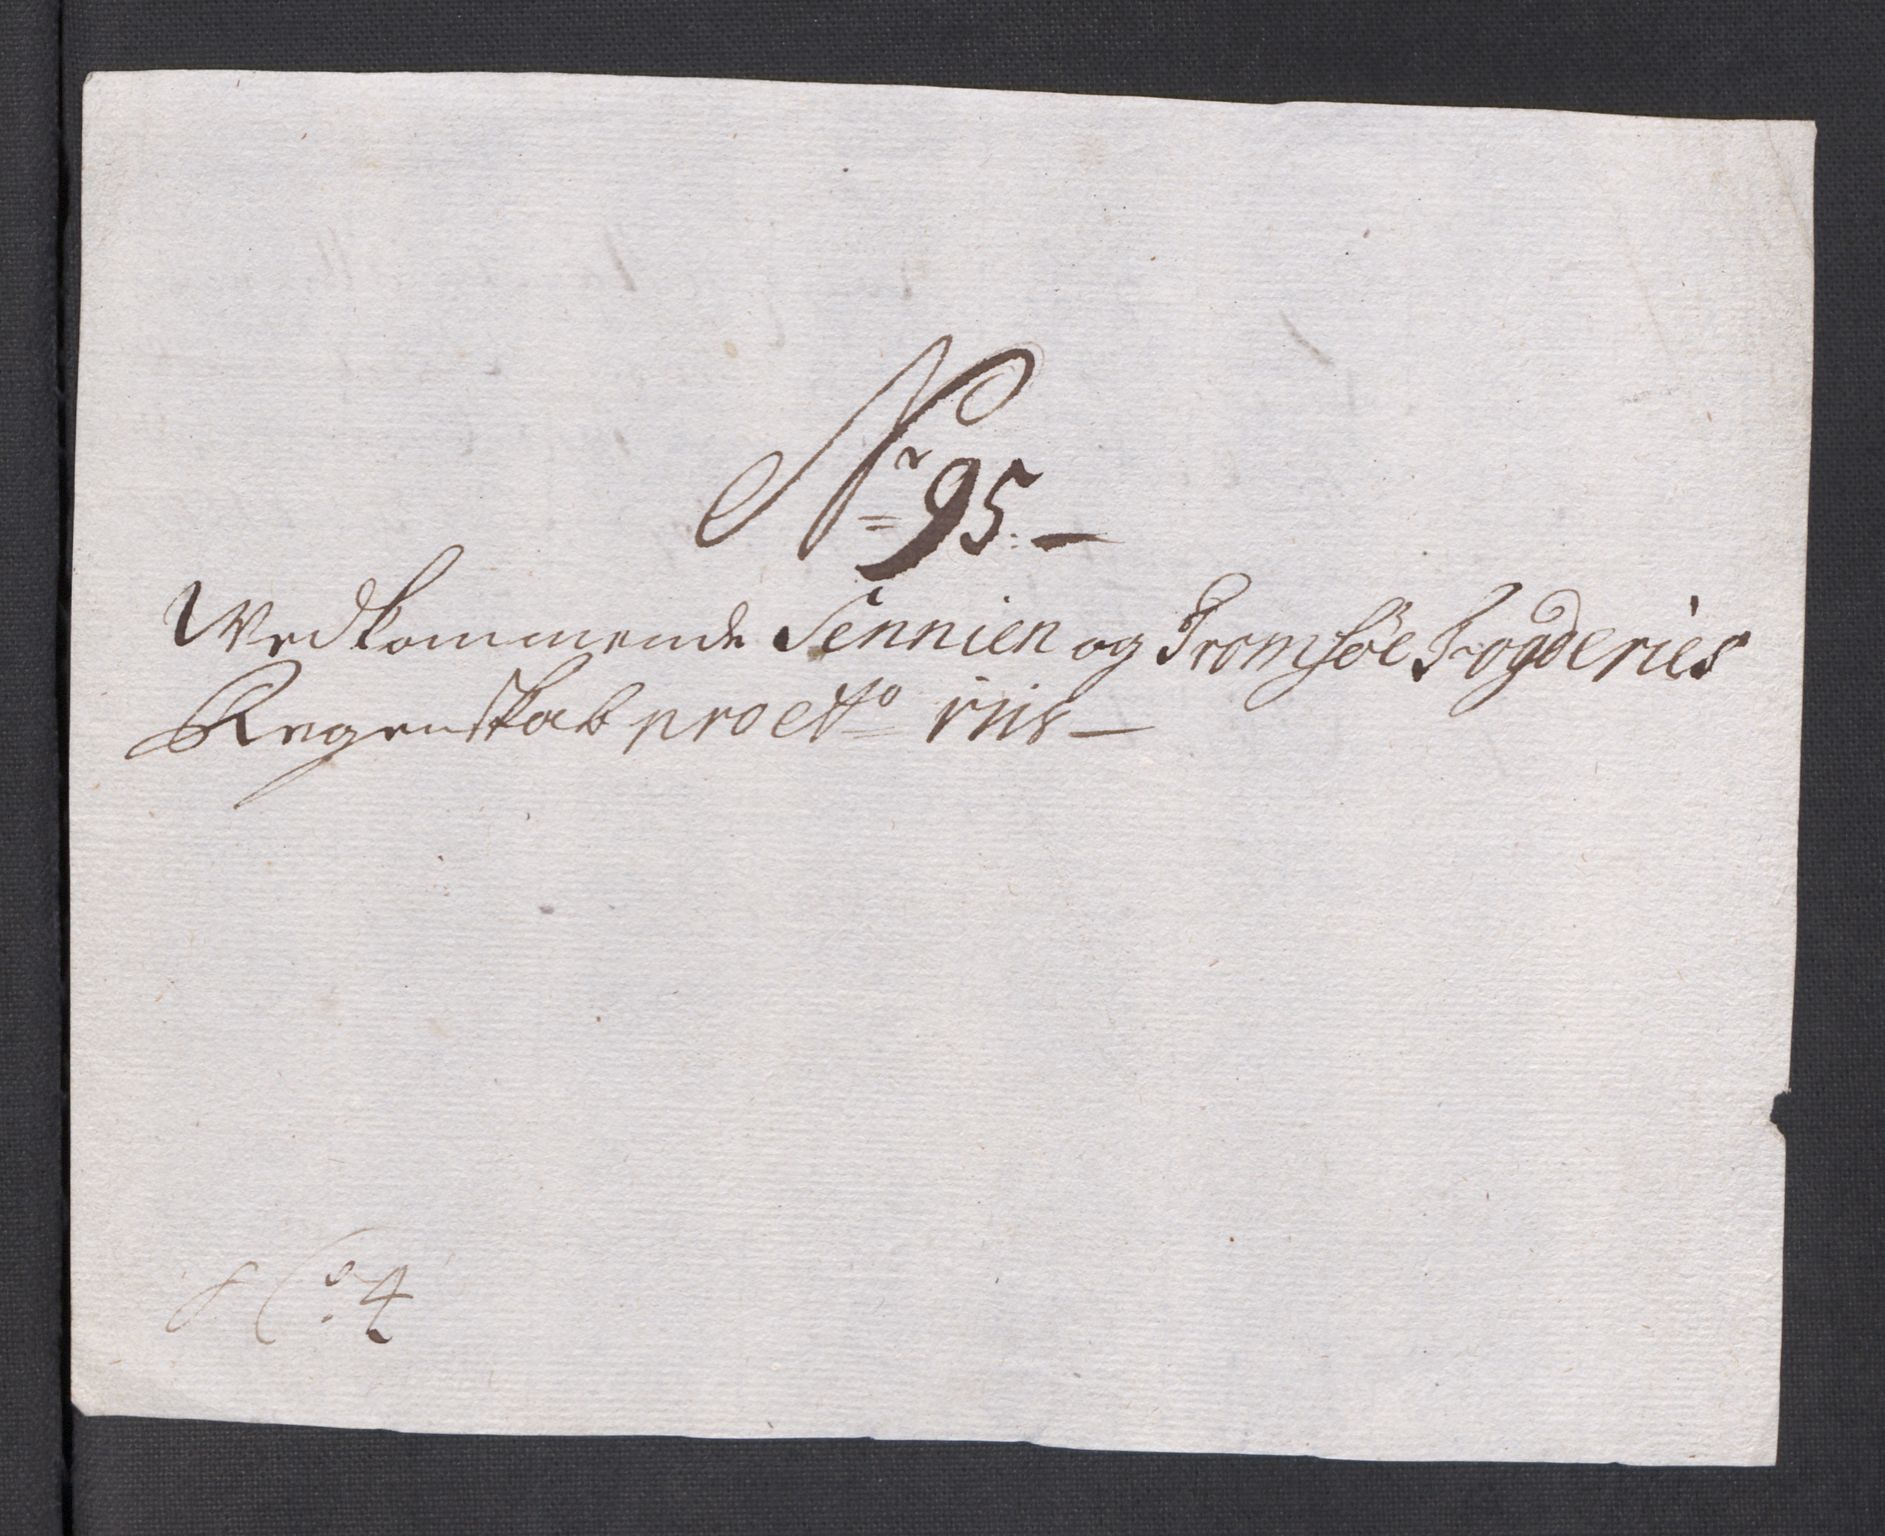 Nr 95.
Wedkommende Sennien og Tromsøe Fogderies
Regenskab pro Ao
4